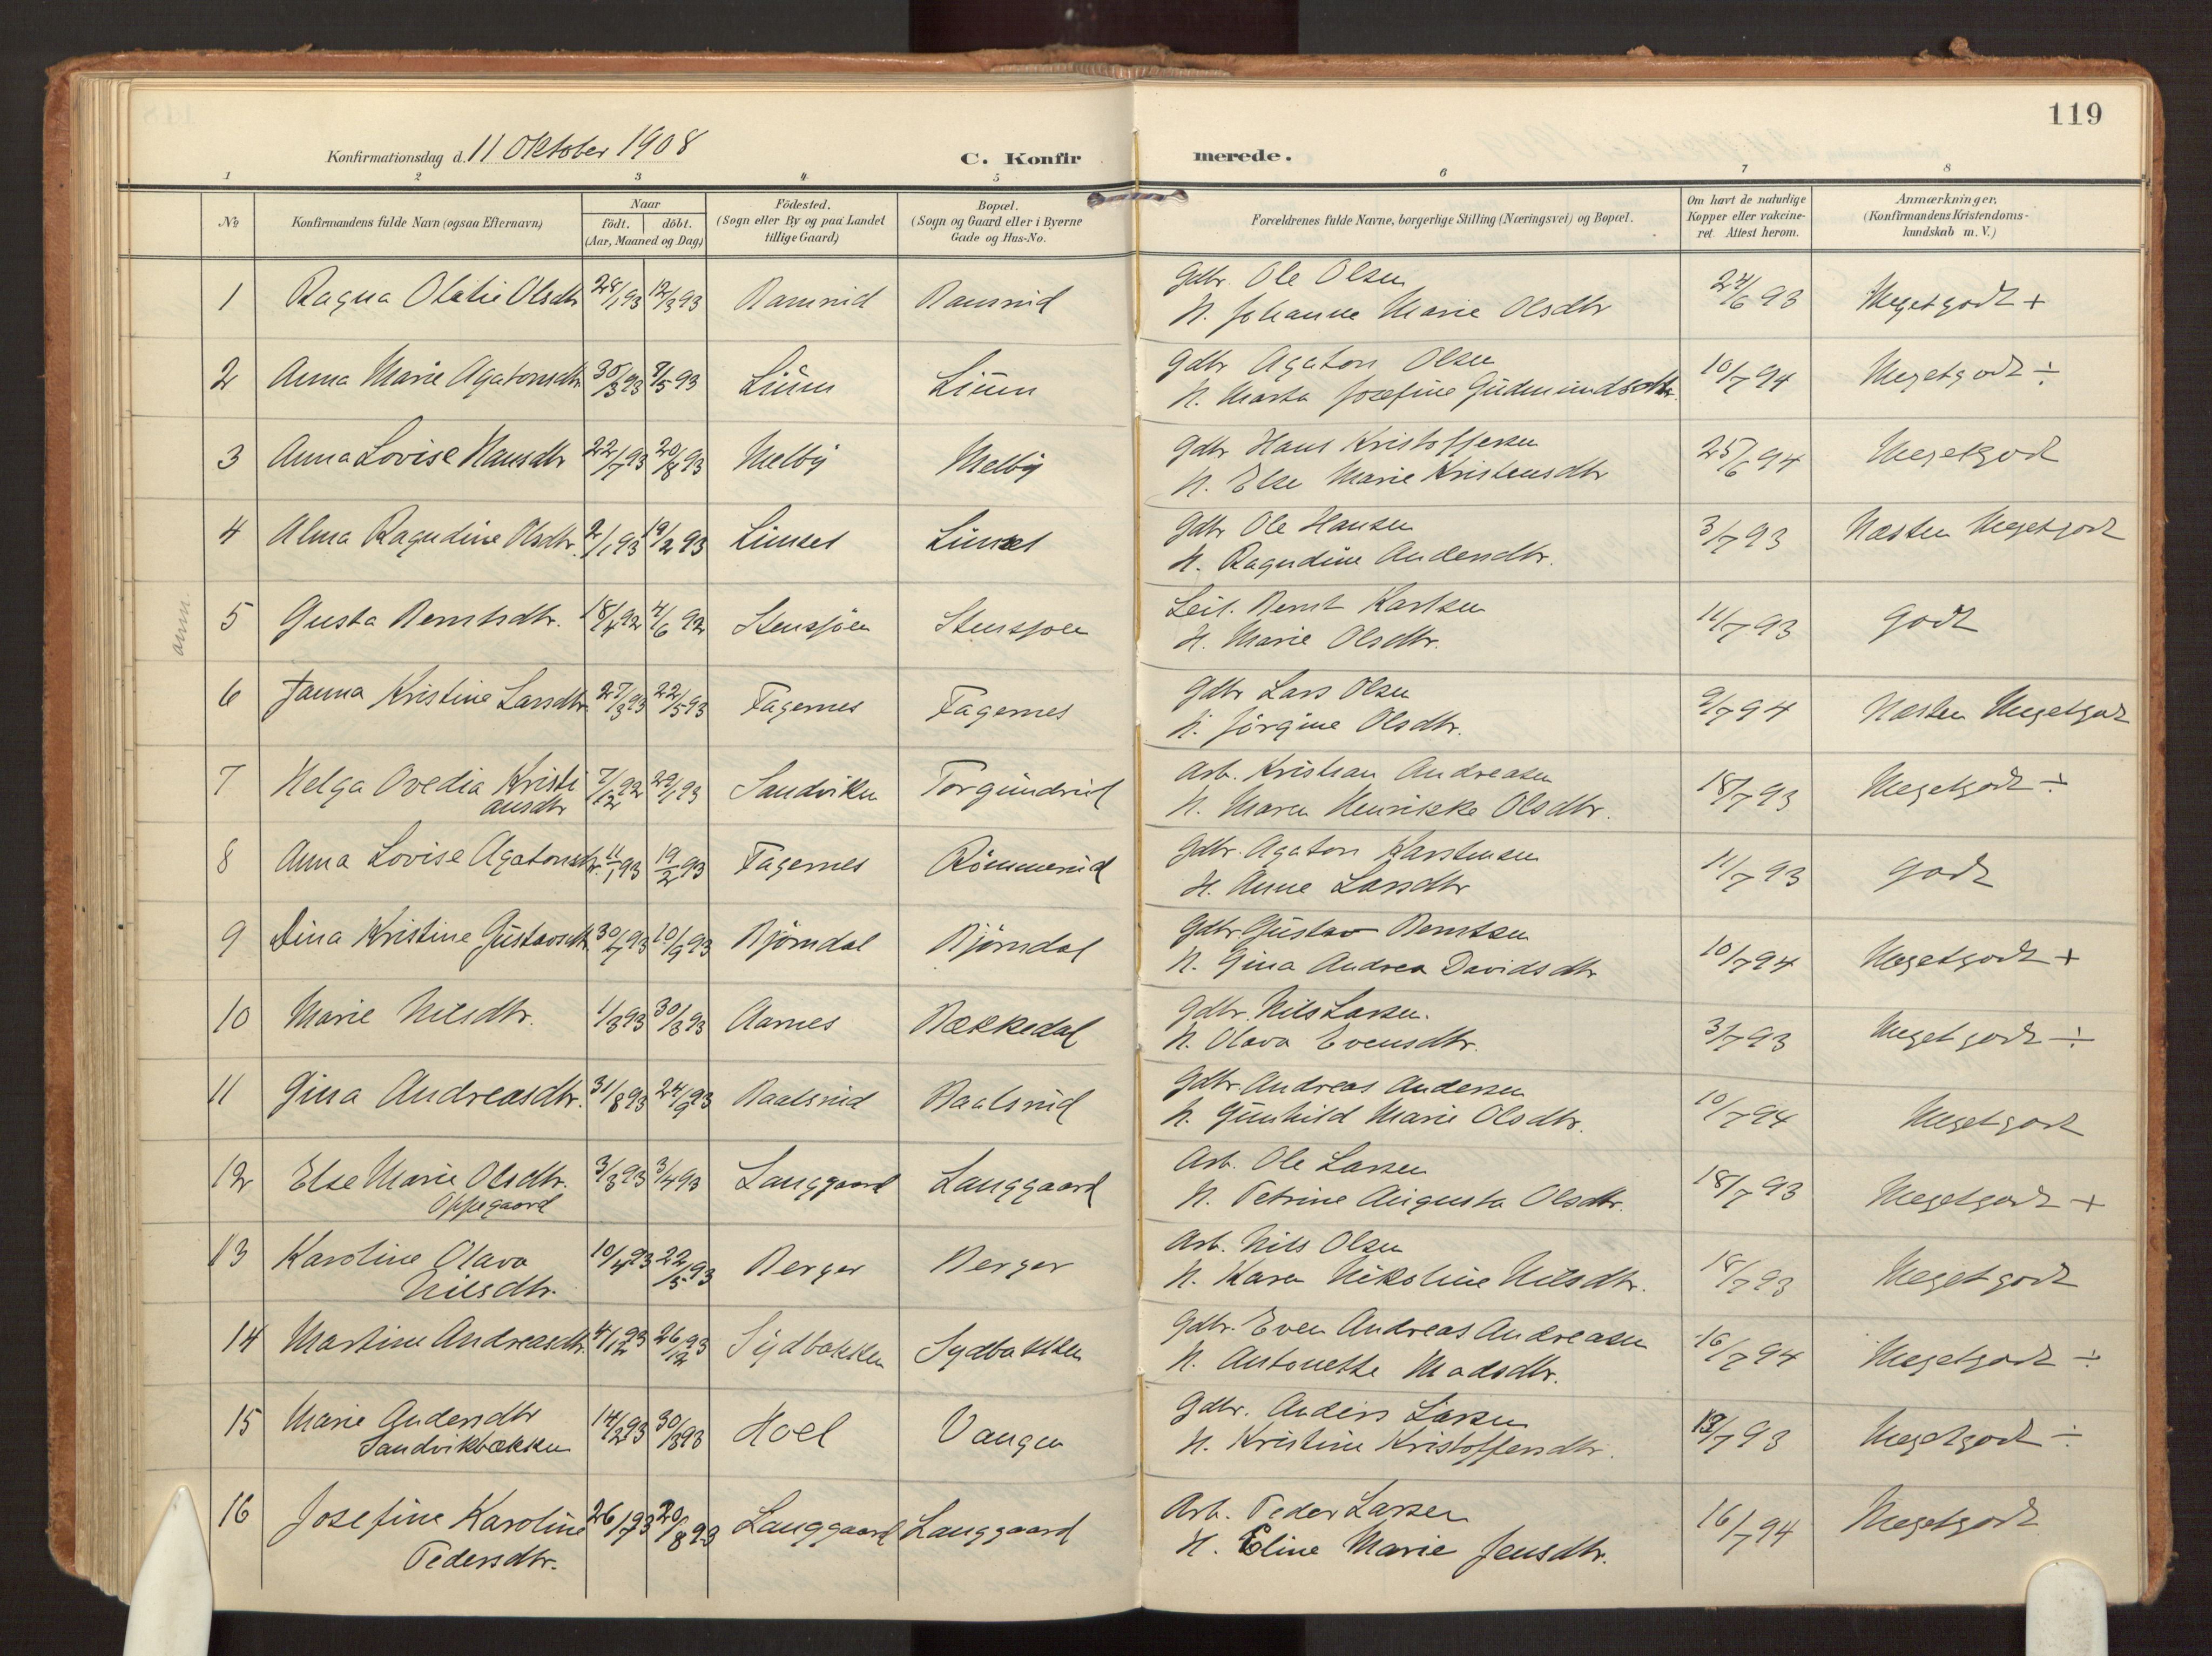 119
Konfirmationsdag d. 11 Oktober 1908 C. Konfirmerede.
1 2 3 4 5 6 7 8
No Konfirmandens fulde Navn (ogsaa Efternavn) Naar födt. döbt. (Aar, Maaned og Dag) Födested. (Sogn eller By og paa Landet tillige Gaard) Bopæl. (Sogn og Gaard eller i Byerne Gade og Hus-No. Forældrenes fulde Navne, borgerlige Stilling (Næringsvei) og Bopæl. Om havt de naturlige Kopper eller vakcineret. Attest herom. Anmærkninger. (Konfirmandens Kristendomskundskab m. V.)
1 Ragna Olatie Olsdtr 28/1 93 12/3 93 Ramsrud Ramsrud Gdbr. Ole Olsen 24/6 93 Megetgodt +
H. Johanne Marie Olsdtr
2 Anna Marie Agatonsdtr 30/3 93 7/5 93 Liüm Liüm Gdbr Agaton Olsen 10/7 94 Megetgodt ÷
H. Marta Josefine Gudmundsdtr.
3 Anna Lovise Hansdtr 22/7 93 20/8 93 Melby Melby Gdbr Hans Kristoffersen 25/6 94 Megetgodt
H. Else Marie Kristensdtr
4 Alma Ragndine Olsdtr. 2/1 93 19/2 93 Limset Limset Gdbr Ole Hansen 3/7 93 Næsten Megetgodt
H. Ragndine Andersdtr.
anm.
5 Gusta Berntsdtr. 18/4 92 4/6 92 Stensjöen Stensjoen Leil. Bernt Karlsen 11/7 93 Godt
H. Marie Olsdtr.
6 Janna Kristine Larsdtr 27/3 93 22/5 93 Fagernes Fagernes Gdbr Lars Olsen 9/7 94 Næsten Megetgodt
H. Jörgine Olsdtr.
7 Helga Ovedia Kristi 7/12 92 29/1 93 Sandviken Torgundrud Arb. Kristian Andreasen 18/7 93 Megetgodt ÷
ansdtr H. Maren Henrikke Olsdtr.
8 Anna Lovise Agatonsdtr. 11/1 93 19/2 93 Fagernes Römmerud Gdbr. Agaton Karstensen 11/7 93 Godt
H. Anne Larsdtr
9 Dina Kristine Gustavsdtr 30/7 93 10/9 93 Björndal Björndal Gdbr Gustav Berntsen 10/7 94 Megetgodt +
H. Gina Andrea Davidsdtr
10 Marie Nilsdtr. 1/3 93 30/3 93 Aarnes Bækkedal Gdbr. Nils Larsen. 3/7 93 Megetgodt ÷
H. Olava Evensdtr.
11 Gina Andreasdtr. 31/8 93 24/9 93 Baalsrud Baalsrud Gdbr. Andreas Andersen 10/7 94 Megetgodt
H. Gunhild Marie Olsdtr.
12 Else Marie Olsdtr. 3/3 93 3/4 93 Langgaard Langgaard Arb. Ole Larsen 18/7 93 Megetgodt +
Oppegaard H. Petrine Augusta Olsdtr.
13 Karoline Olava 10/4 93 22/5 93 Berger Berger Arb. Nils Olsen 18/7 93 Megetgodt
Nilsdtr. H. Karen Nikoline Nilsdtr.
14 Martine Andreasdtr. 4/12 93 26/12 93 Sydbakken Sydbakken Gdbr. Even Andreas Andreasen 16/7 94 Megetgodt ÷
H. Antonette Madsdtr.
15 Marie Andersdtr 14/2 93 30/3 93 Hoel Vangen Gdbr. Anders Larsen 13/7 93 Megetgodt ÷
Sandvikbækken H. Kristine Kristoffersdtr.
16 Josefine Karoline 26/7 93 20/8 93 Langgaard Langgaard Arb. Peder Larsen 16/7 94 Megetgodt
Pedersdtr. H. Eline Marie Jensdtr.